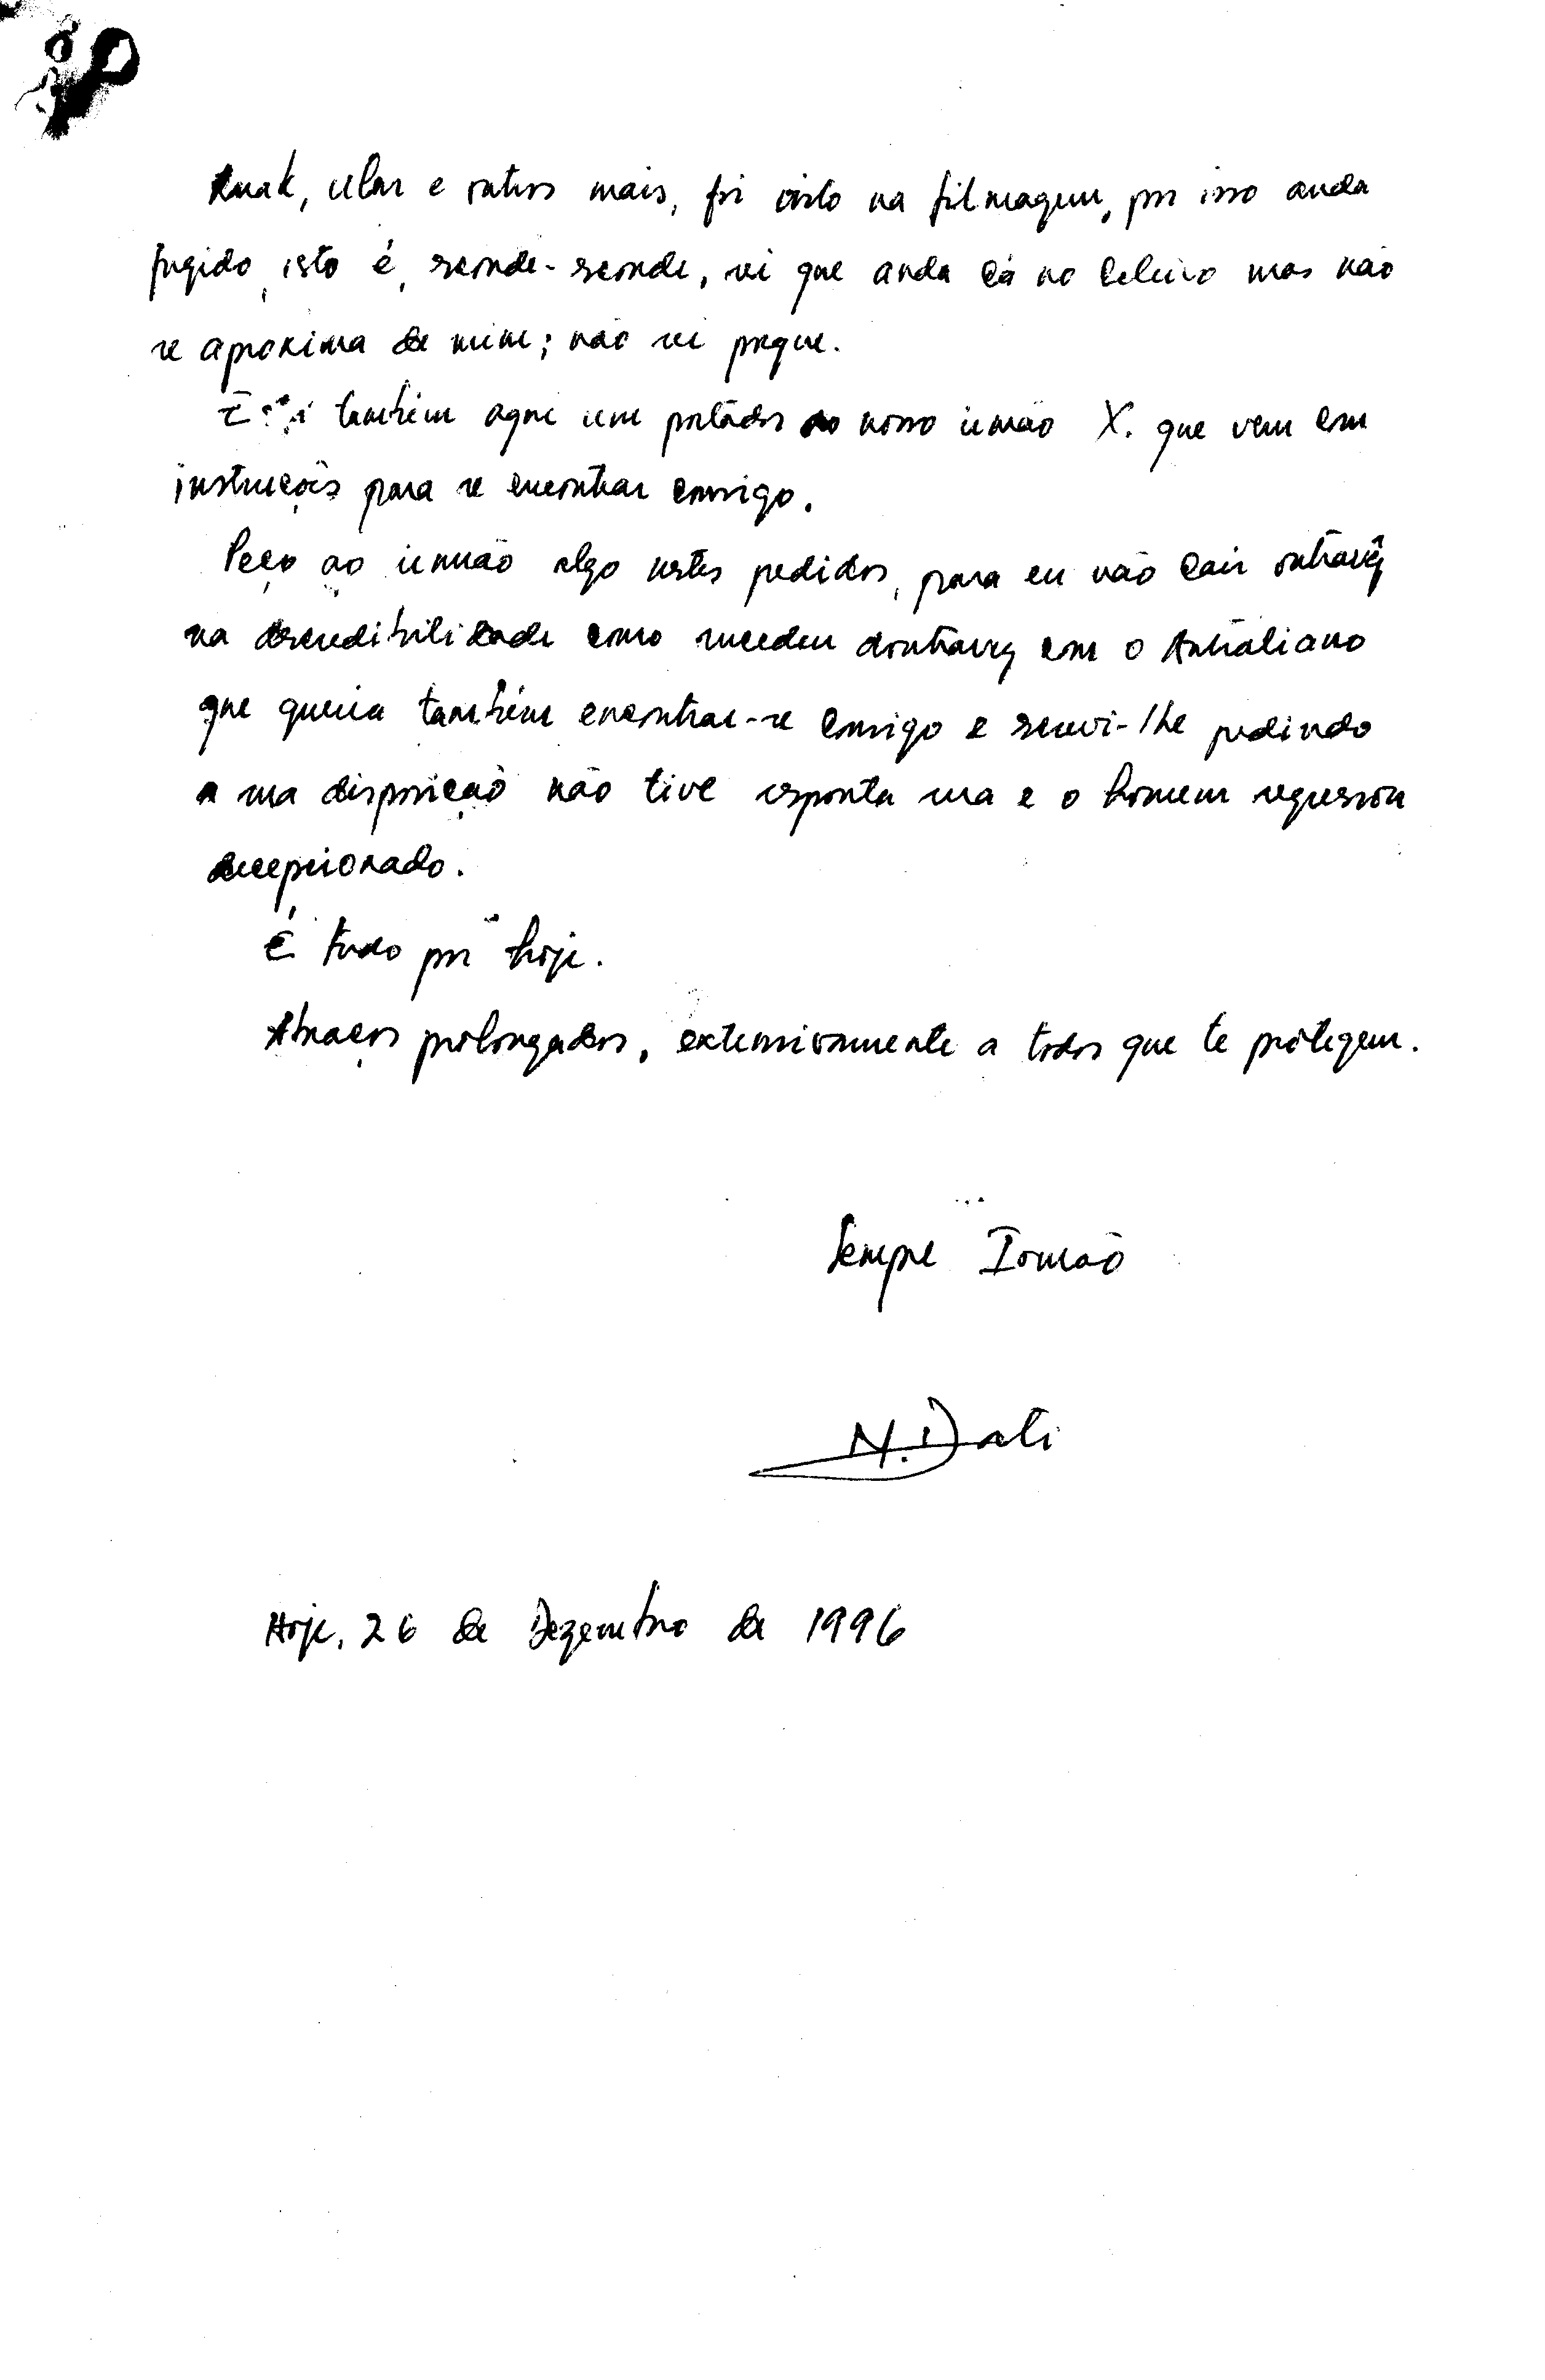 Ruak, Ular e outros mais, foi visto na filmagem, por isso anda
fugido, isto é, sconde-sconde, sei que anda cá no Celeiro mas não
se aproxima de mim; não sei porque.
também aqui um portador do nosso irmão X. que vem com
instruções para se encontrar consigo.
Peço ao irmão algo nestes pedidos, para eu não cair outravêz
na descredibilidade como sucedeu doutravez com o Autraliano
que queria também encontrar-se consigo e screvi-lhe pedindo
a sua disposição não tive resposta sua e o homem regressou
decepcionado.
É tudo por hoje.
Abraços prolongados, extensivamente a todos que te protegem.
Sempre Irmão
N. Dati
Hoje, 26 de Dezembro de 1996